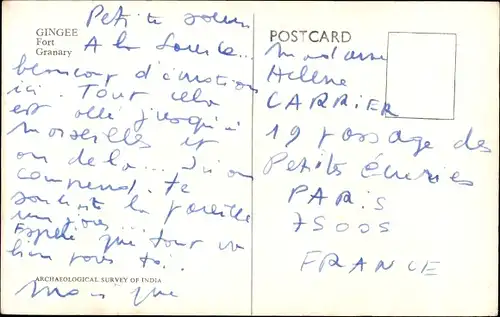 GINGEE
Fort
Granary
Petite soeur
A la source...
beaucoup d'émotions
ici. Tout cela
est allé jusqu'à
Marseille et
au delà...
comprend. Te
souhaite la pareille
un jour...
J'espère que tout va
bien pour toi.
ARCHAEOLOGICAL SURVEY OF INDIA
POSTCARD
Madame
Hélène
CARRIER
19 passage des
Petites Écuries
PARIS
75005
FRANCE